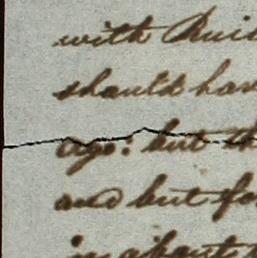 with
should hav
ago: but th
and but fo
in about